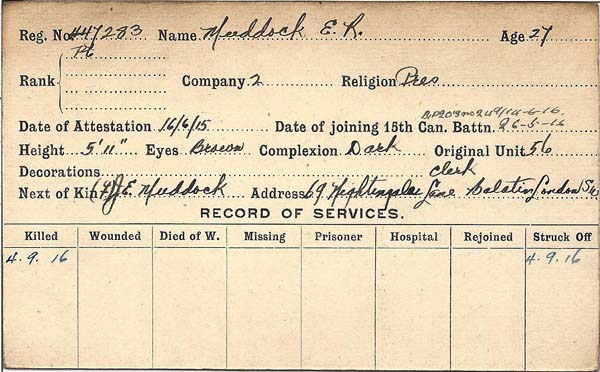 Reg. No. 447283 Name Muddock E. R. Age 27
Rank Pte Company 2 Religion Pres
14-6-16.
Date of Attestation 16/6/15 Date of joining 15th Can. Battn. 26-5-16
Height 5' 11" Eyes Brown Complexion Dark Original Unit 56
Decorations Clerk
Next of Kin J.E. Muddock Address 69 Nightingale Lane London SW.
RECORD OF SERVICES.
Killed Wounded Died of W. Missing Prisoner Hospital Rejoined Struck Off
4. 9. 16 4. 9. 16